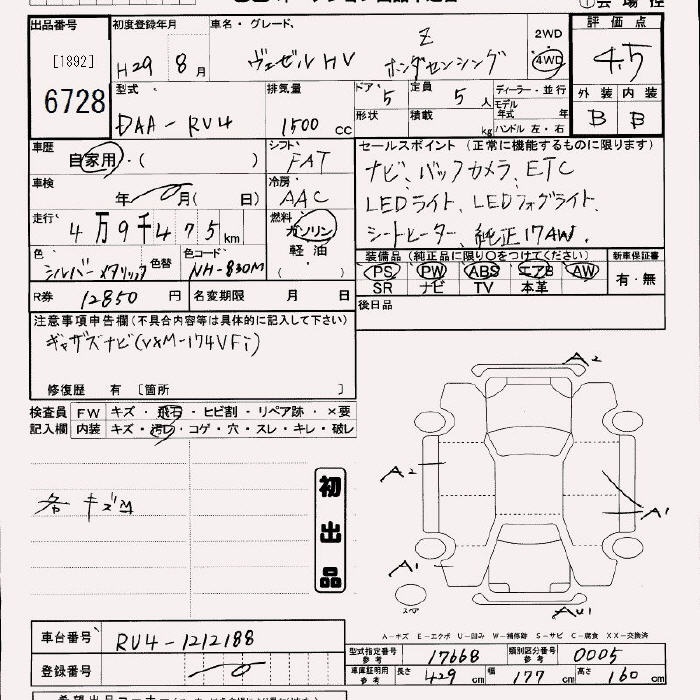 出品番号 初度登録年月 車名・グレード、 2WD 評価点
[1892] H29 8月 ヴェゼル HV Z ホンダセンシング 4WD 4.5
6728 型式 DAA-RU4 排気量 1500 cc ドア 5 定員 5人 ディーラー・並行 外装 内装
形状 積載 kg モデル年式 年 ハンドル 左・右 B B
車歴 自家用・( ) シフト FAT セールスポイント (正常に機能するものに限ります)
車検 年 月( 日) 冷房 AAC ナビ、バックカメラ、ETC
走行 4万9千475km 燃料 ガソリン LEDライト、LEDフォグライト、
色 シルバーメタリック 色替 色コード NH-830M 軽油 ( ) シートヒーター、純正17AW
装備品 (純正品に限り○をつけてください) 新車保証書
PS PW ABS エアB AW 有・無
SR ナビ TV 本革
R券 12850 円 名変期限 月 日 後日品
注意事項申告欄(不具合内容等は具体的に記入して下さい)
ギャザズナビ(VXM-174VFi)
修復歴 有 [箇所 ]
検査員 FW キズ・飛石・ヒビ割・リペア跡・×要
記入欄 内装 キズ・汚レ・コゲ・穴・スレ・キレ・破レ
A2
A2
A1
各 キズM
初出品
A1
スペア
AU1
A-キズ E-エクボ U-凹み W-補修跡 S-サビ C-腐食 XX-交換済
車台番号 RU4-1212188
型式指定番号 参考 17668 類別区分番号 参考 0005
登録番号 車庫証明用 参考 長さ 429cm 幅 177cm 高さ 160cm